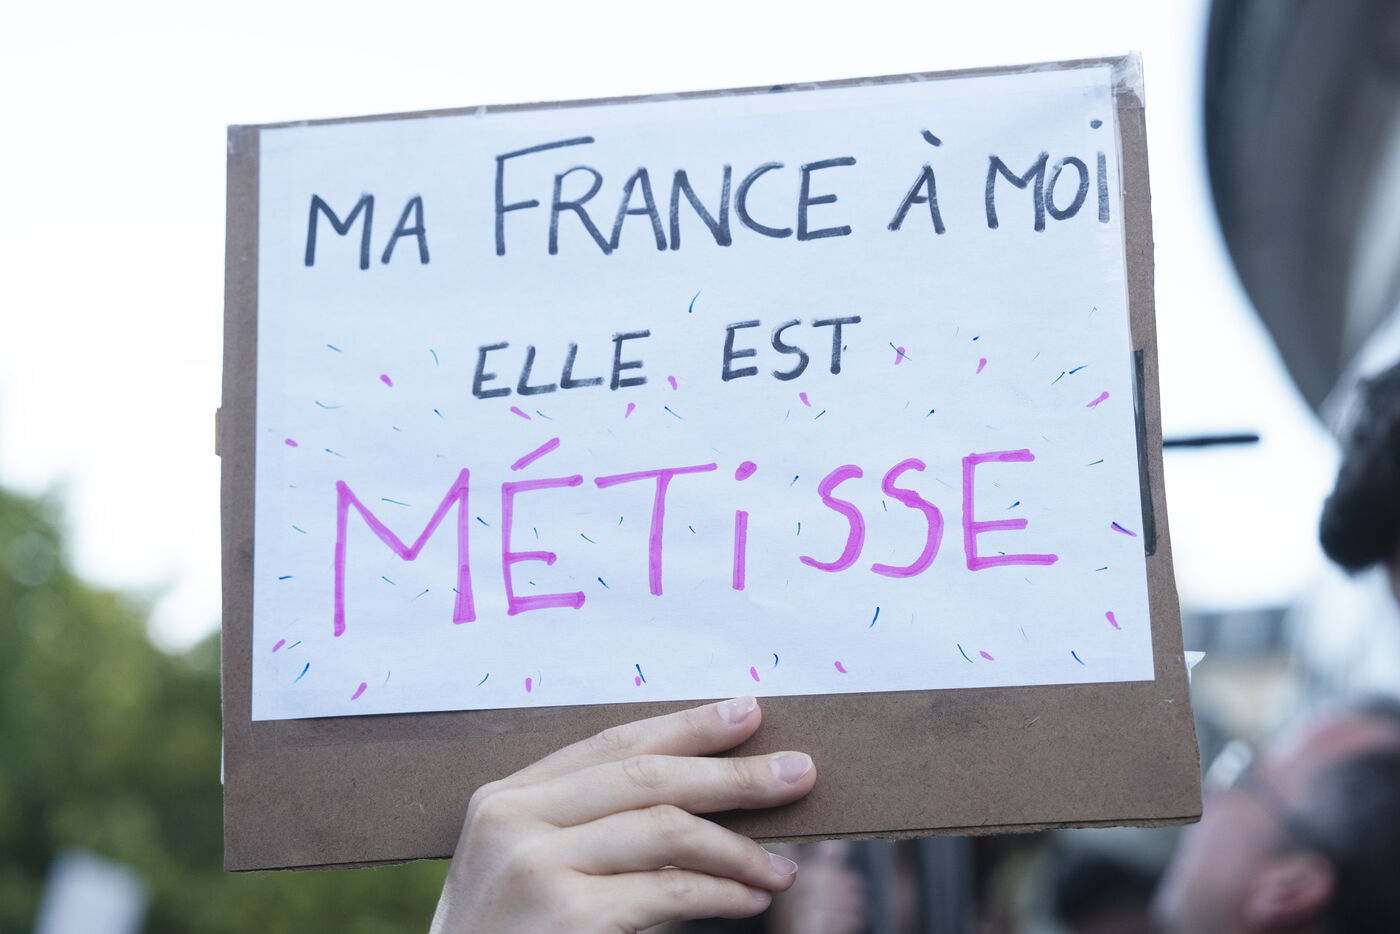 MA FRANCE À MOi
ELLE EST
MÉTiSSE